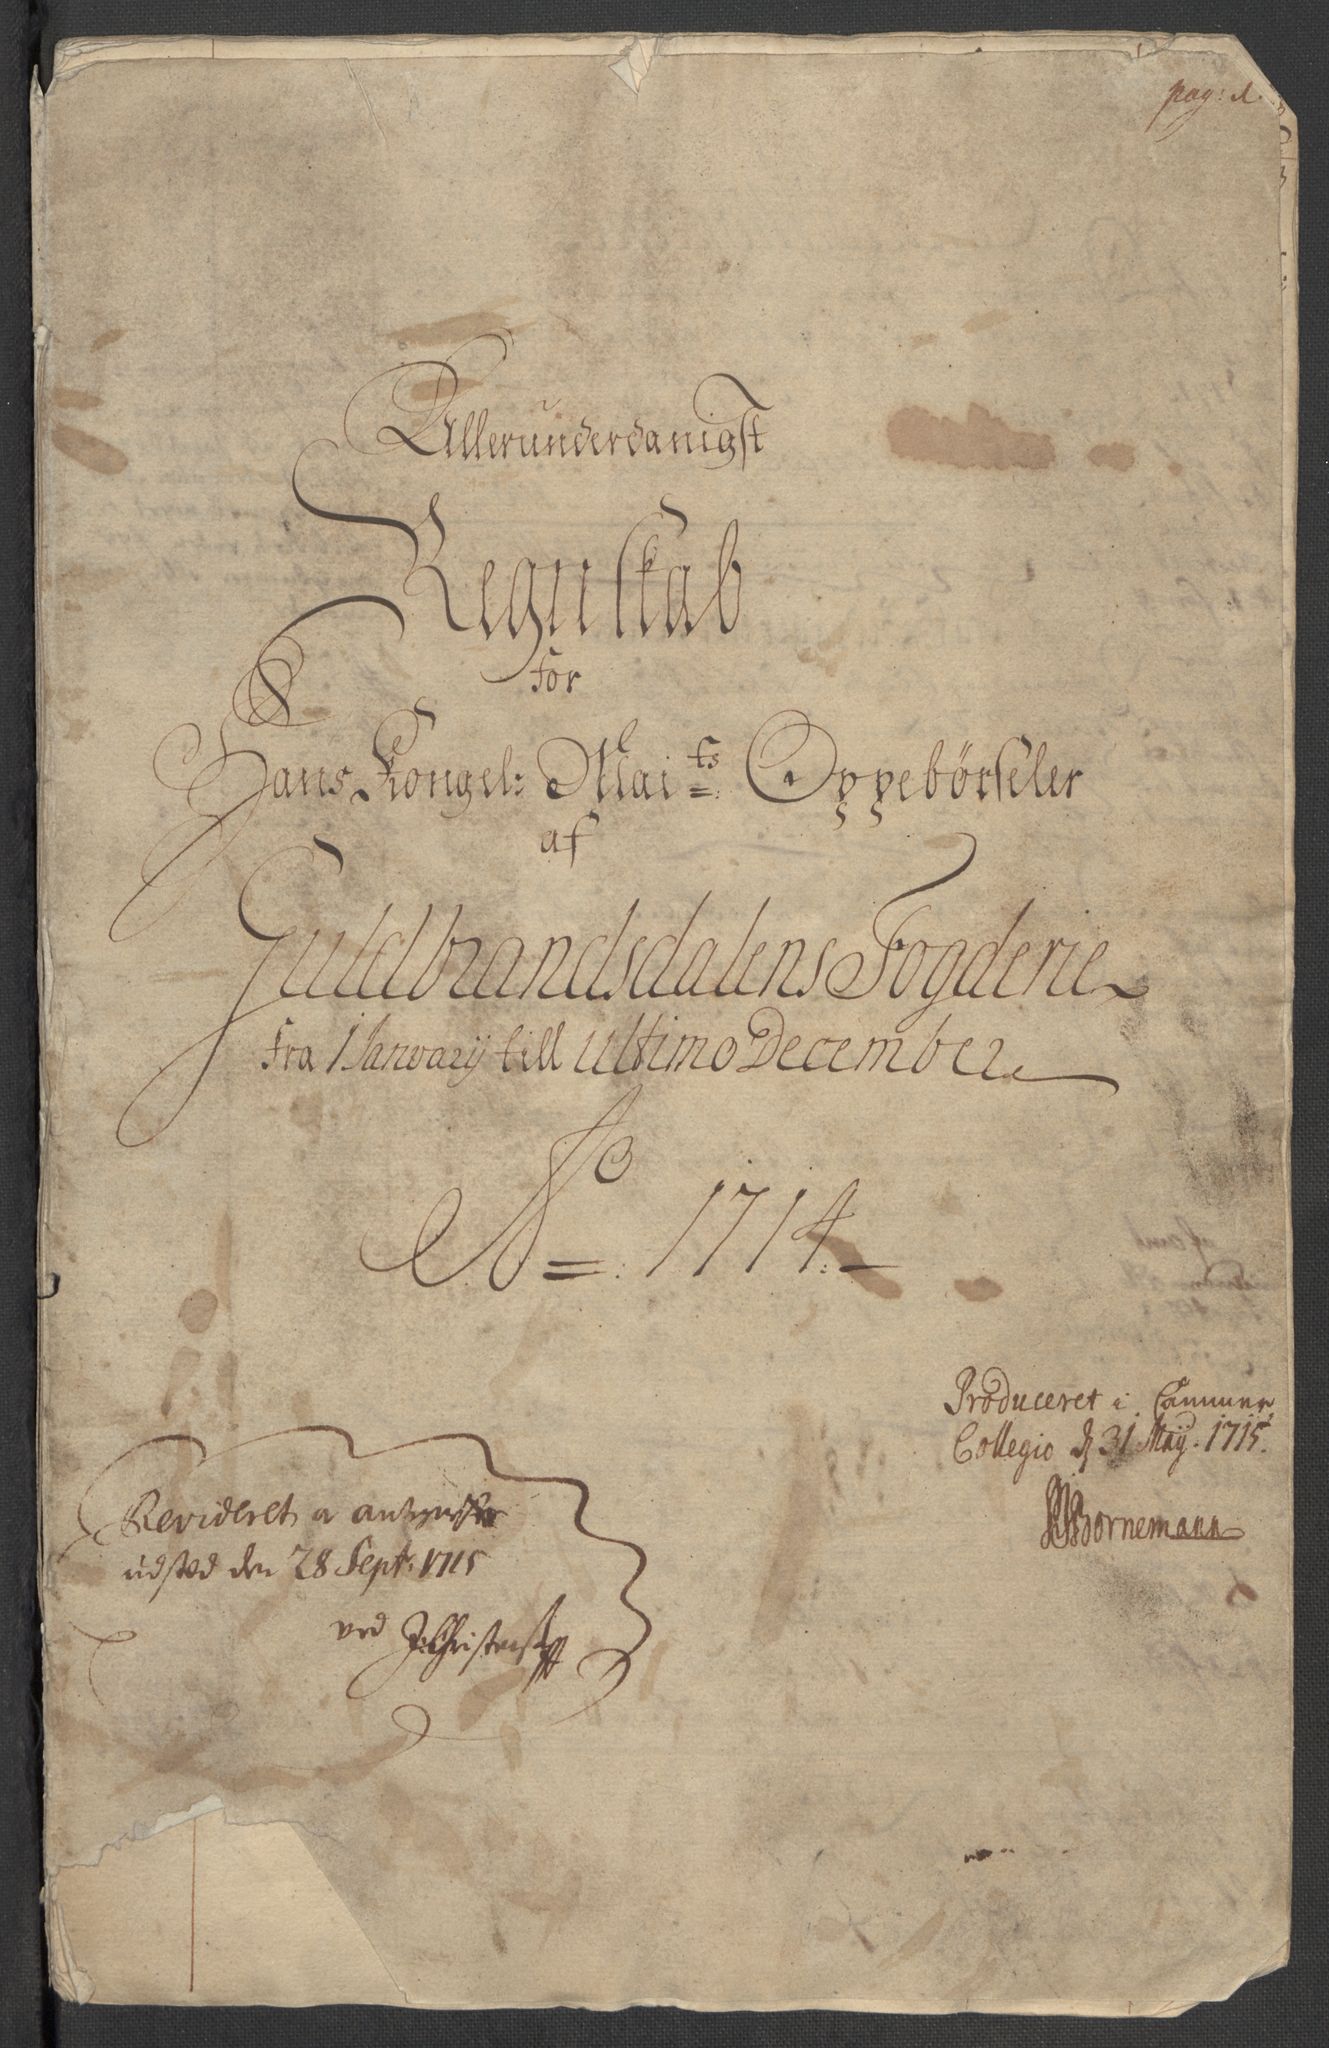 pag: 1.
Allerunderdanigst
Regnskab
for
Hans Kongel: Mai:ts Oppebörseler
af
Guldbrandsdalens Fogderie
fra 1 January till ultimo December
Ao 1714.
Produceret i Cammer
Collegio d 31 May. 1715.
Bornemann
Revideret a
udsted den 28 Sept. 1715
ved J: Christens